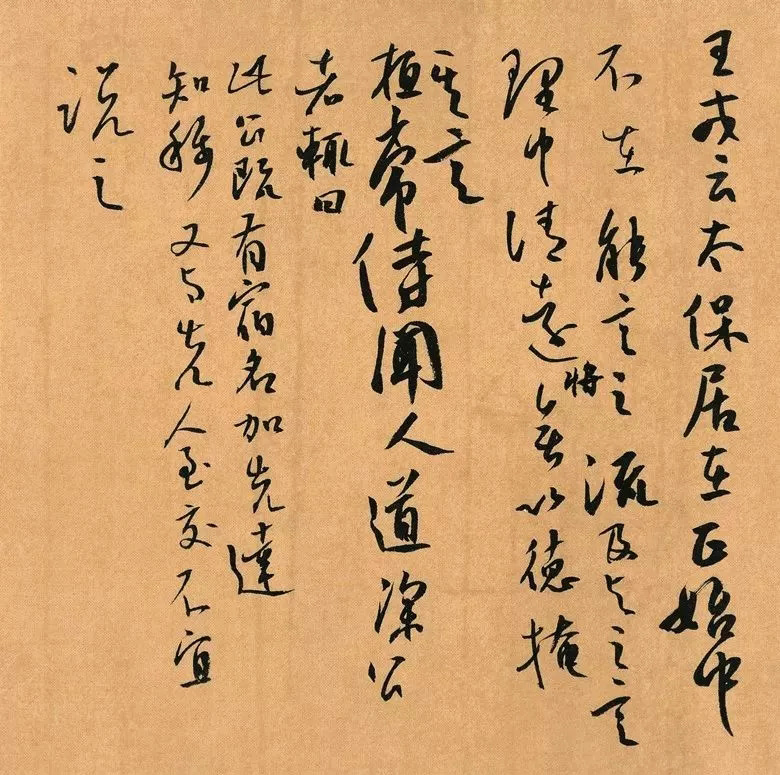 王戎云太保居在正始中
不在能言之流及与之言
理中清遠將無以德掩
其言
桓常侍聞人道深公
者輒曰
此公既有宿名加先達
知稱又与先人至交不宜
說之